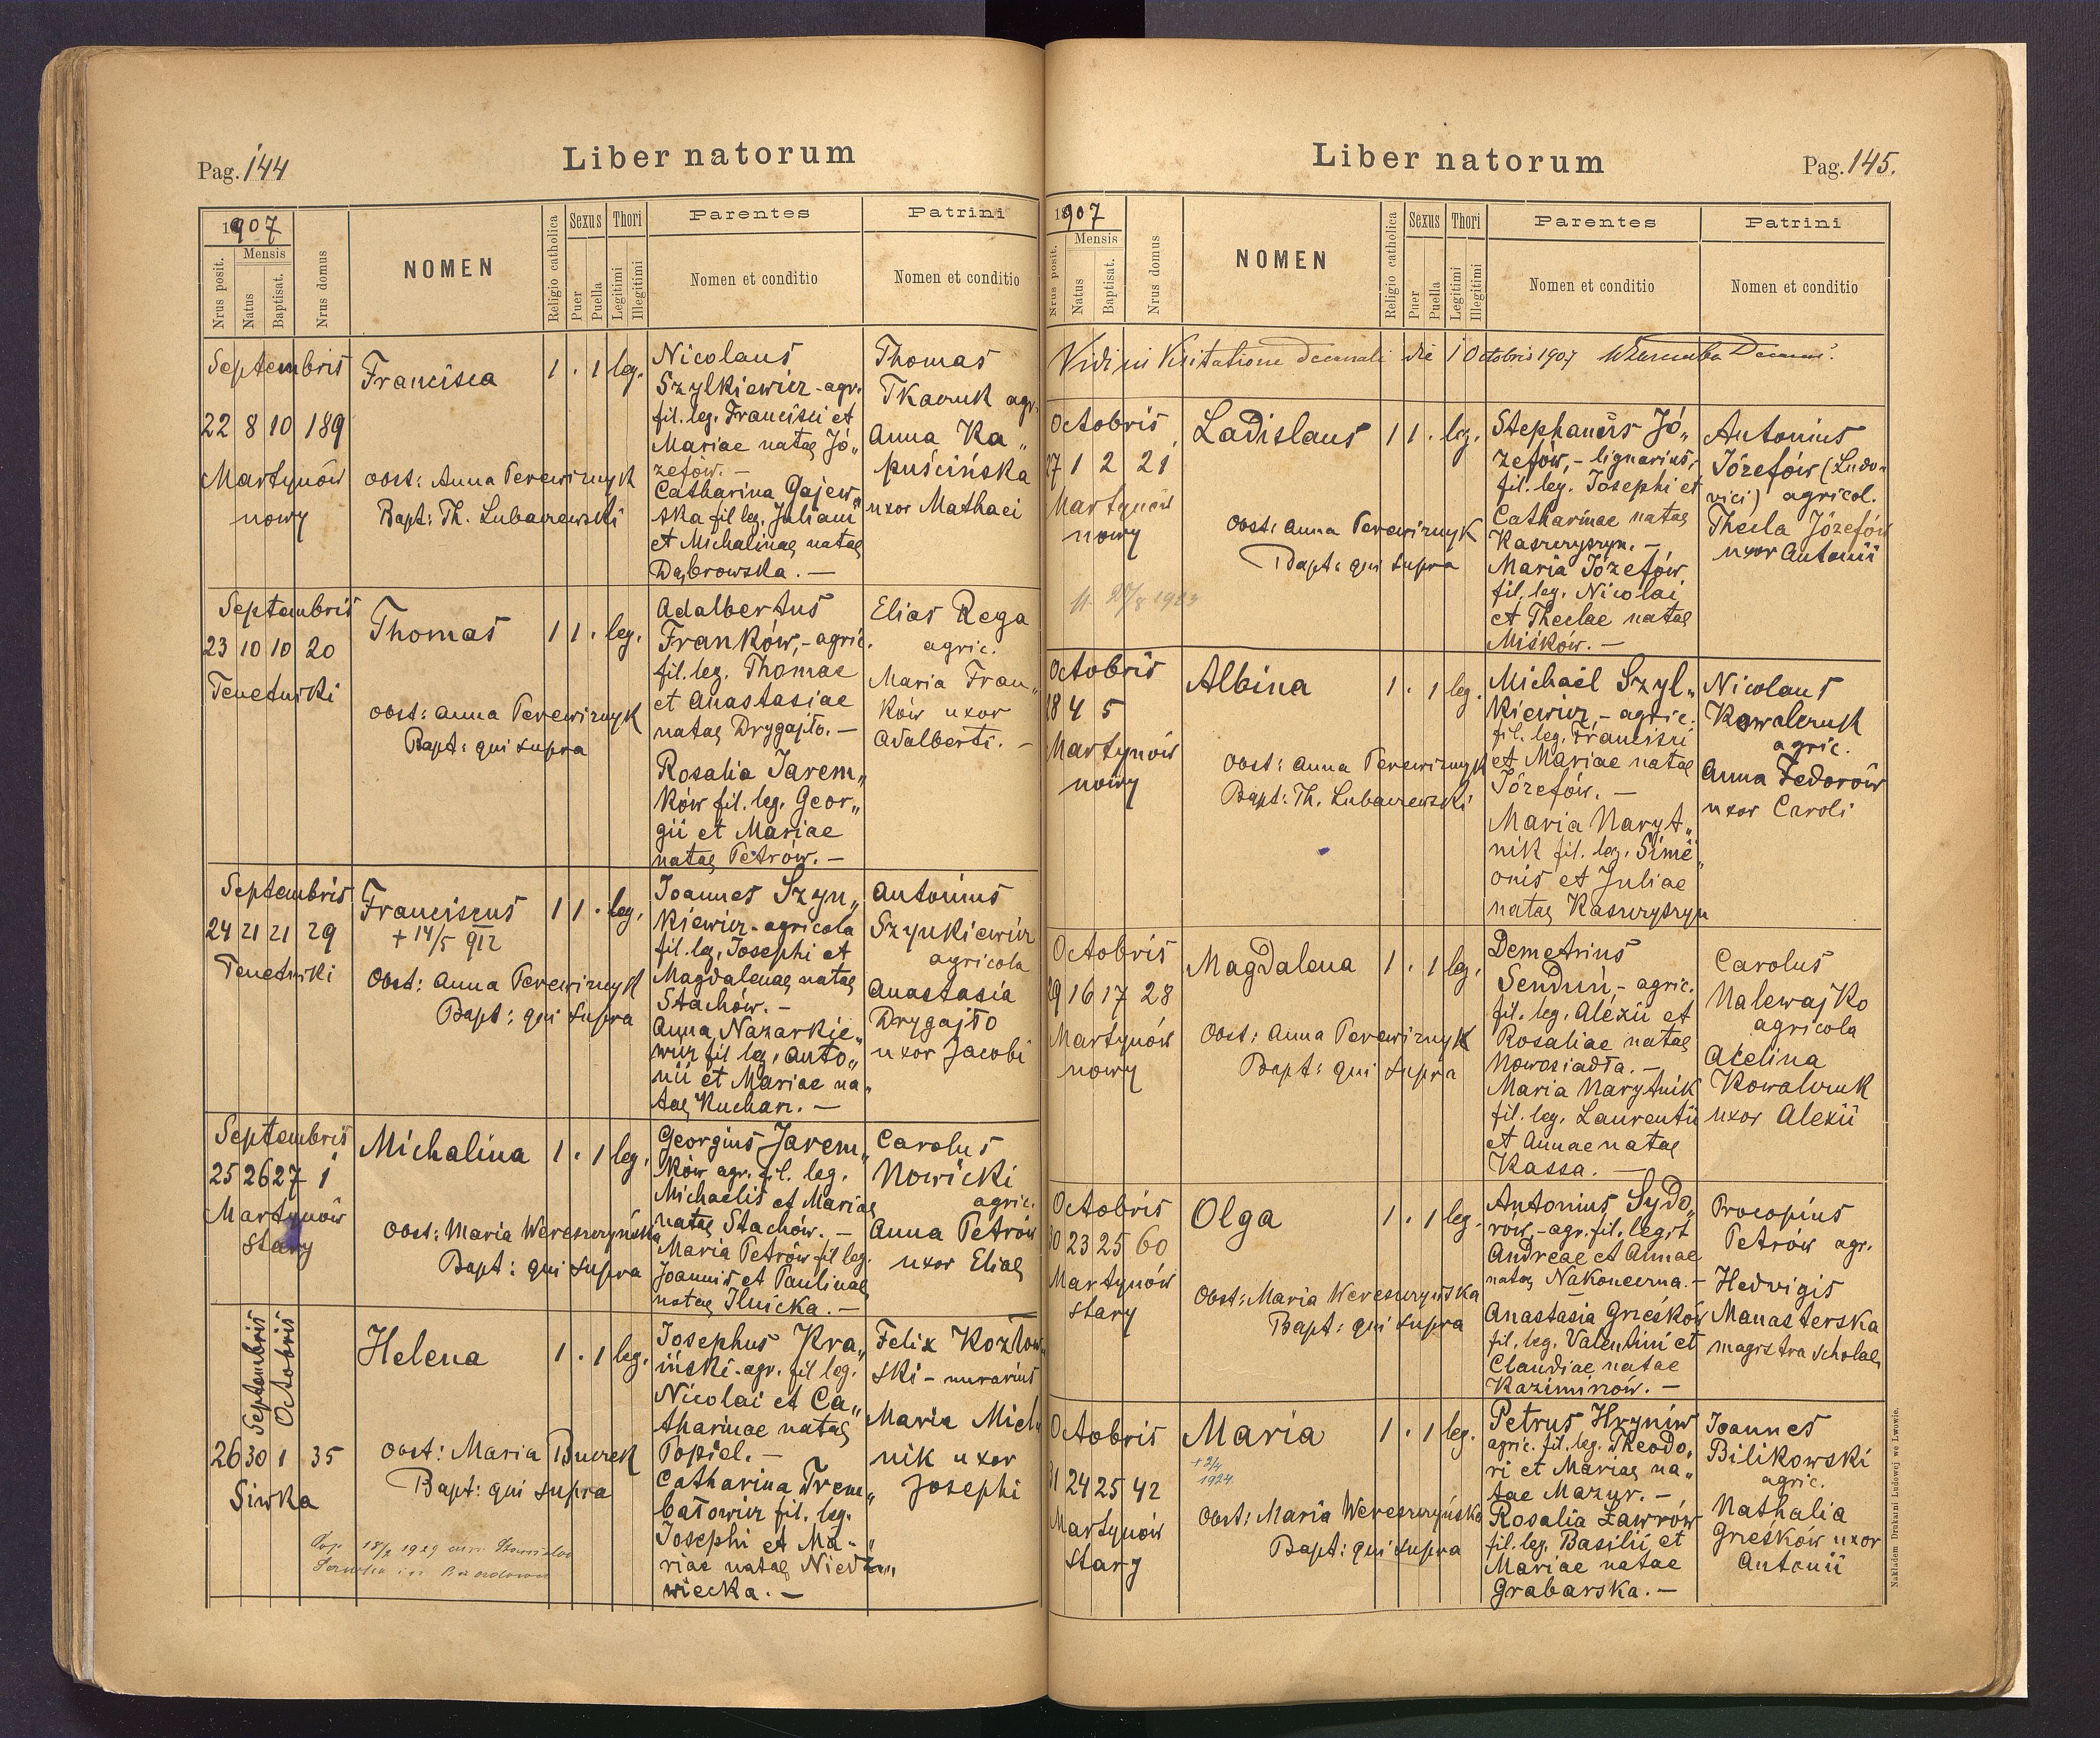 Pag. 144
Liber natorum
1907
Mensis
Nrus posit.
Natus
Baptisat.
Nrus domus
NOMEN
Religio catholica
Sexus
Puer
Puella
Thori
Legitimi
Illegitimi
Parentes
Nomen et conditio
Patrini
Nomen et conditio
Septembris
22 8 10 189
Martynów
nowy
Francisca
obst: Anna Perewiznyk
Bapt: Th. Lubaczewski
1 . 1 leg.
Nicolaus
Szylkiewicz - agr.
fil. leg. Francisci et
Mariae natae Jó„
zefów. —
Catharina Gajew„
ska fil leg. Juliani
et Michalinae natae
Dąbrowska. —
Thomas
Tkaczuk agr.
Anna Ka„
puścińska
uxor Mathaei
Septembris
23 10 10 20
Tenetniki
Thomas
obst: Anna Perewiznyk
Bapt: qui supra
1 1 . leg.
Adalbertus
Franków, - agric.
fil. leg. Thomae
et Anastasiae
natae Drygajło. —
Rosalia Jarem„
ków fil. leg. Geor„
gii et Mariae
natae Petrów. —
Elias Rega
agric.
Maria Fran„
ków uxor
Adalberti. —
Septembris
24 21 21 29
Tenetniki
Franciscus
+ 14/5 912
Obst: Anna Perewiznyk
Bapt: qui supra
1 1 . leg.
Joannes Szyn„
kiewicz - agricola
fil. leg. Josephi et
Magdalenae natae
Stachów. —
Anna Nazarkie„
wicz fil leg. Anto„
nii et Mariae na„
tae Kuchar. —
Antonius
Szynkiewicz
agricola
Anastasia
Drygajło
uxor Jacobi
Septembris
25 26 27 1
Martynów
stary
Michalina
Obst: Maria Wereszczyńska
Bapt: qui supra
1 . 1 leg.
Georgius Jarem„
ków agr. fil. leg.
Michaelis et Mariae
natae Stachów. —
Maria Petrów fil leg.
Joannis et Paulinae
natae Ilnicka. —
Carolus
Nowicki
agric.
Anna Petrów
uxor Eliae
Septembris
Octobris
26 30 1 35
Siwka
Helena
obst: Maria Burek
Bapt: qui supra
1 . 1 leg.
Josephus Kra„
iński - agr. fil leg.
Nicolai et Ca„
tharinae natae
Popiel. —
Catharina Trem„
batowicz fil. leg.
Josephi et Ma-„
riae natae Niedźw„
wiecka. —
Felix Kozłow„
ski - murarius
Maria Miel„
nik uxor
Josephi
Cop. 18/2 1929 cum Stanislao
Pag. 145.
Liber natorum
1907
Mensis
Nrus posit.
Natus
Baptisat.
Nrus domus
NOMEN
Religio catholica
Sexus
Puer
Puella
Thori
Legitimi
Illegitimi
Parentes
Nomen et conditio
Patrini
Nomen et conditio
Vidi in Visitatione decanali die 1 Octobris 1907
Octobris
27 1 2 21
Martynów
nowy
Ladislaus
Obst: Anna Perewiznyk
Bapt: qui supra
1 1 . leg.
Stephanus Jó„
zefów, - lignarius,
fil. leg. Josephi et
Catharinae natae
Kaszczyszyn. —
Maria Józefów
fil. leg. Nicolai
et Theclae natae
Miśków. —
Antonius
Józefów (Ludo„
vici) agricol.
Thecla Józefów
uxor Antonii
Octobris
28 4 5
Martynów
nowy
Albina
Obst: Anna Perewiznyk
Bapt: Th. Lubaczewski
1 . 1 leg.
Michaël Szyl„
kiewicz, - agric.
fil. leg. Francisci
et Mariae natae
Józefów. —
Maria Naryt„
nik fil. leg. Sime„
onis et Juliae
natae Kaszczyszyn
Nicolaus
Kowalczuk
agric.
Anna Fedorów
uxor Caroli
Octobris
29 16 17 28
Martynów
nowy
Magdalena
Obst: Anna Perewiznyk
Bapt: qui supra
1 . 1 leg.
Demetrius
Senduń - agric.
fil. leg. Alexii et
Rosaliae natae
Nowosiadła. —
Maria Narytnik
fil. leg. Laurentii
et Annae natae
Kassa. —
Carolus
Nalewajko
agricola
Acelina
Kowalczuk
uxor Alexii
Octobris
30 23 25 60
Martynów
stary
Olga
Obst: Maria Wereszczyńska
Bapt: qui supra
1 . 1 leg.
Antonius Sydo„
rów, - agr. fil. leg. t
Andreae et Annae
natae Nakoneczna. —
Anastasia Grieśków
fil. leg. Valentini et
Claudiae natae
Kazimirów. —
Procopius
Petrów agr.
Hedvigis
Manasterska
magistra scholae
Octobris
31 24 25 42
Martynów
stary
Maria
+ 2/4
1924
Obst: Maria Wereszczyńska
Bapt: qui supra
1 . 1 leg.
Petrus Hryniw
agric. fil. leg. Theodo„
ri et Mariae na„
tae Mazur. —
Rosalia Ławrów
fil. leg. Basilii et
Mariae natae
Grabarska. —
Joannes
Bilikowski
agric.
Nathalia
Grieśków uxor
Antonii
Nakładem Drukarni Ludowej we Lwowie.